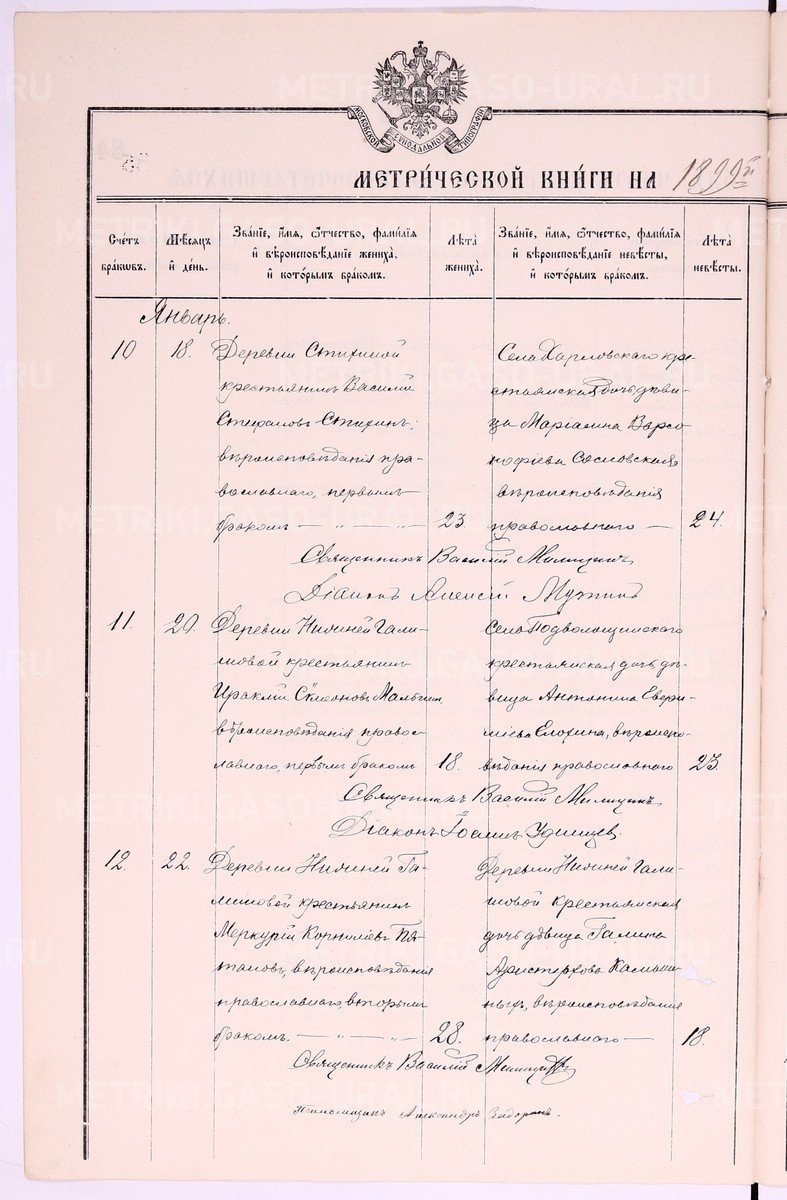 МОСКОВСКОЙ СѴНОДАЛЬНОЙ ТИПОГРАФІИ
МЕТРИ́ЧЕСКОЙ КНИ́ГИ НА 1899й
Сче́тъ бра́ковъ.
Мѣ́сяцъ и҆ де́нь.
Зва́нїе, и҆́мѧ, ѻ҆́тчество, фами́лїѧ и҆ вѣроисповѣ́данїе жениха̀, и҆ кото́рымъ бра́комъ.
Лѣ́та жениха̀.
Зва́нїе, и҆́мѧ, ѻ҆́тчество, фами́лїѧ и҆ вѣроисповѣ́данїе невѣ́сты, и҆ кото́рымъ бра́комъ.
Лѣ́та невѣ́сты.
Январь.
10 18. Деревни Стихиной
крестьянинъ Василій
Стефановъ Стихинъ,
вѣроисповѣданія пра-
вославнаго, первымъ
бракомъ — „ — „ — 23.
Села Харловскаго кре-
стьянская дочь дѣви-
ца Маріамна Варсо-
нофіева Сосновская
вѣроисповѣданія
православнаго — 24.
Священникъ Василій
Діаконъ Алексій
11. 20. Деревни Нижней Гали-
шовой крестьянинъ
Ираклій Симеоновъ
вѣроисповѣданія правос-
лавнаго, первымъ бракомъ 18.
Села Подволошинскаго
крестьянская дочь дѣ-
вица Антонина
Елохина, вѣроиспо-
вѣданія православнаго 23.
Священникъ Василій
Діаконъ Іоаннъ Удинцев.
12. 22. Деревни Нижней Га-
лишовой крестьянинъ
Меркурій Корниліевъ Пя-
таковъ, вѣроисповѣданія
православнаго, вторымъ
бракомъ. — „ — „ — 28.
Деревни Нижней Гали-
шовой крестьянская
дочь дѣвица Галина
Аристархова
вѣроисповѣданія
православнаго — 18.
Священникъ Василій
Псаломщикъ Александръ
METRIKI.GASO-URAL.RU